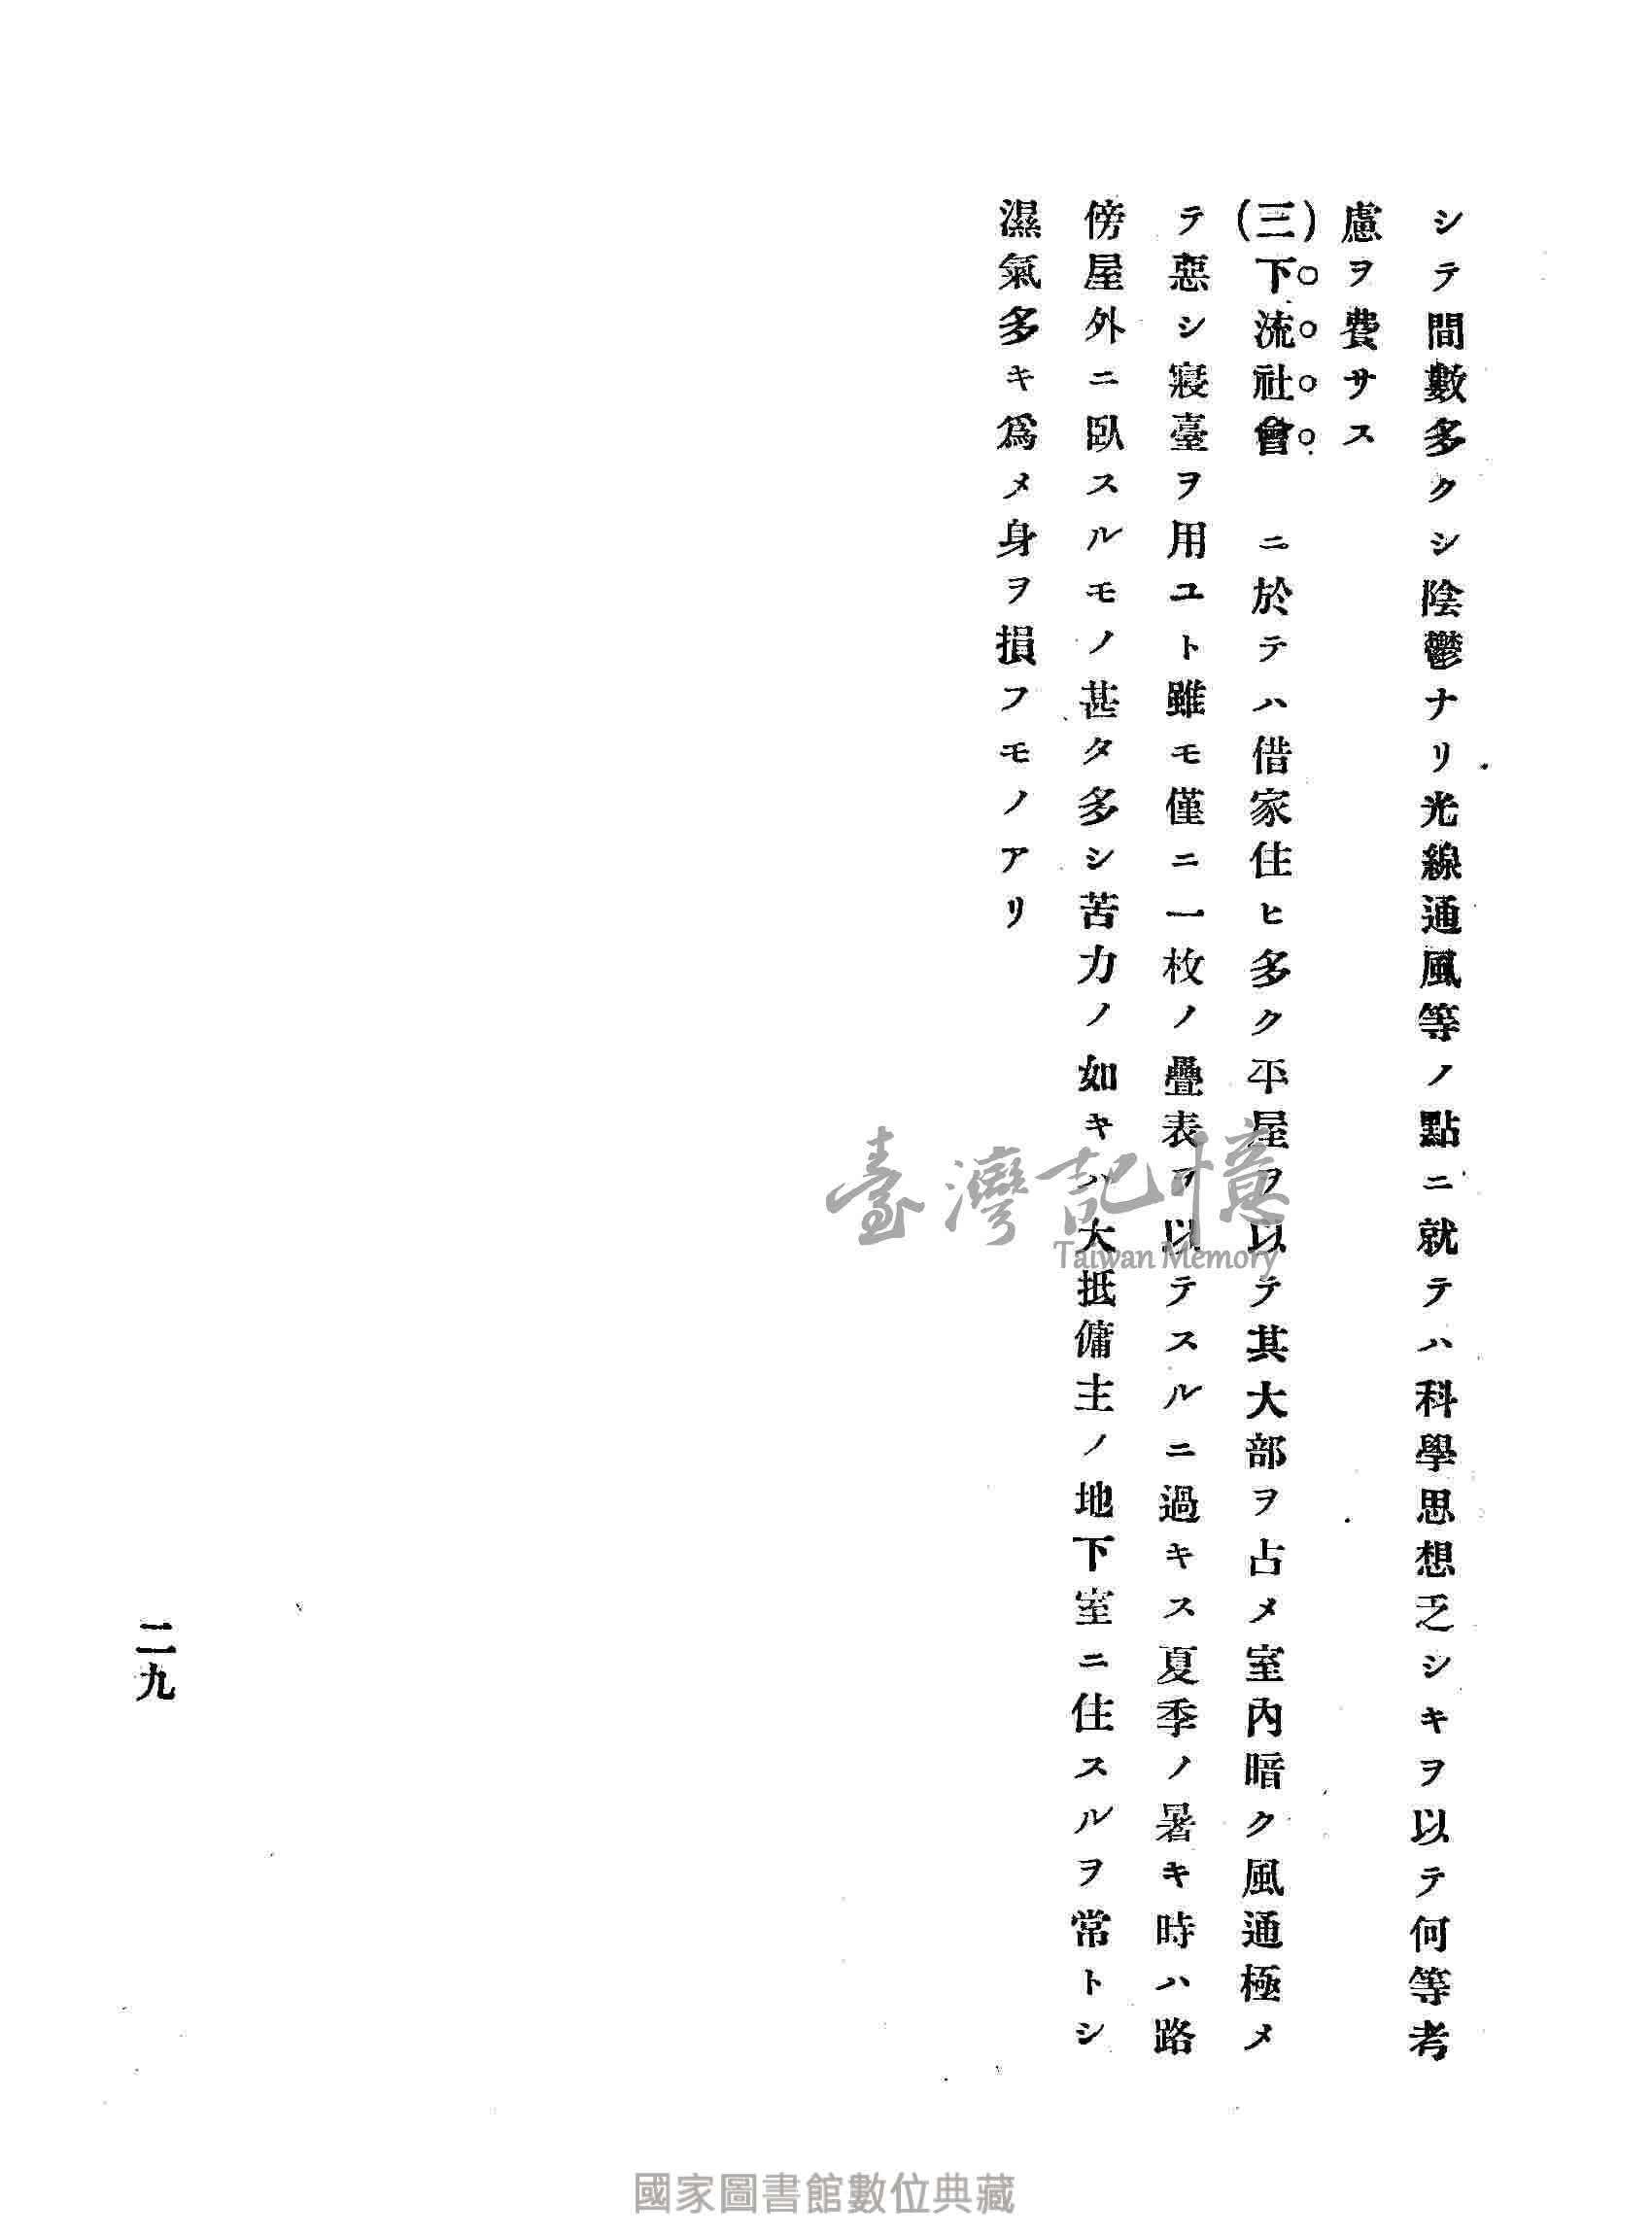 シテ間數多クシ陰鬱ナリ光線通風等ノ點ニ就テハ科學思想乏シキヲ以テ何等考
慮ヲ費サス
(三)下流社會　ニ於テハ借家住ヒ多ク平屋ヲ以テ其大部ヲ占メ室內暗ク風通極メ
テ惡シ寢臺ヲ用ユト雖モ僅ニ一枚ノ疊表ヲ以テスルニ過キス夏季ノ暑キ時ハ路
傍屋外ニ臥スルモノ甚タ多シ苦力ノ如キハ大抵傭主ノ地下室ニ住スルヲ常トシ
濕氣多キ爲メ身ヲ損フモノアリ
二九
臺灣記憶
Taiwan Memory
國家圖書館數位典藏